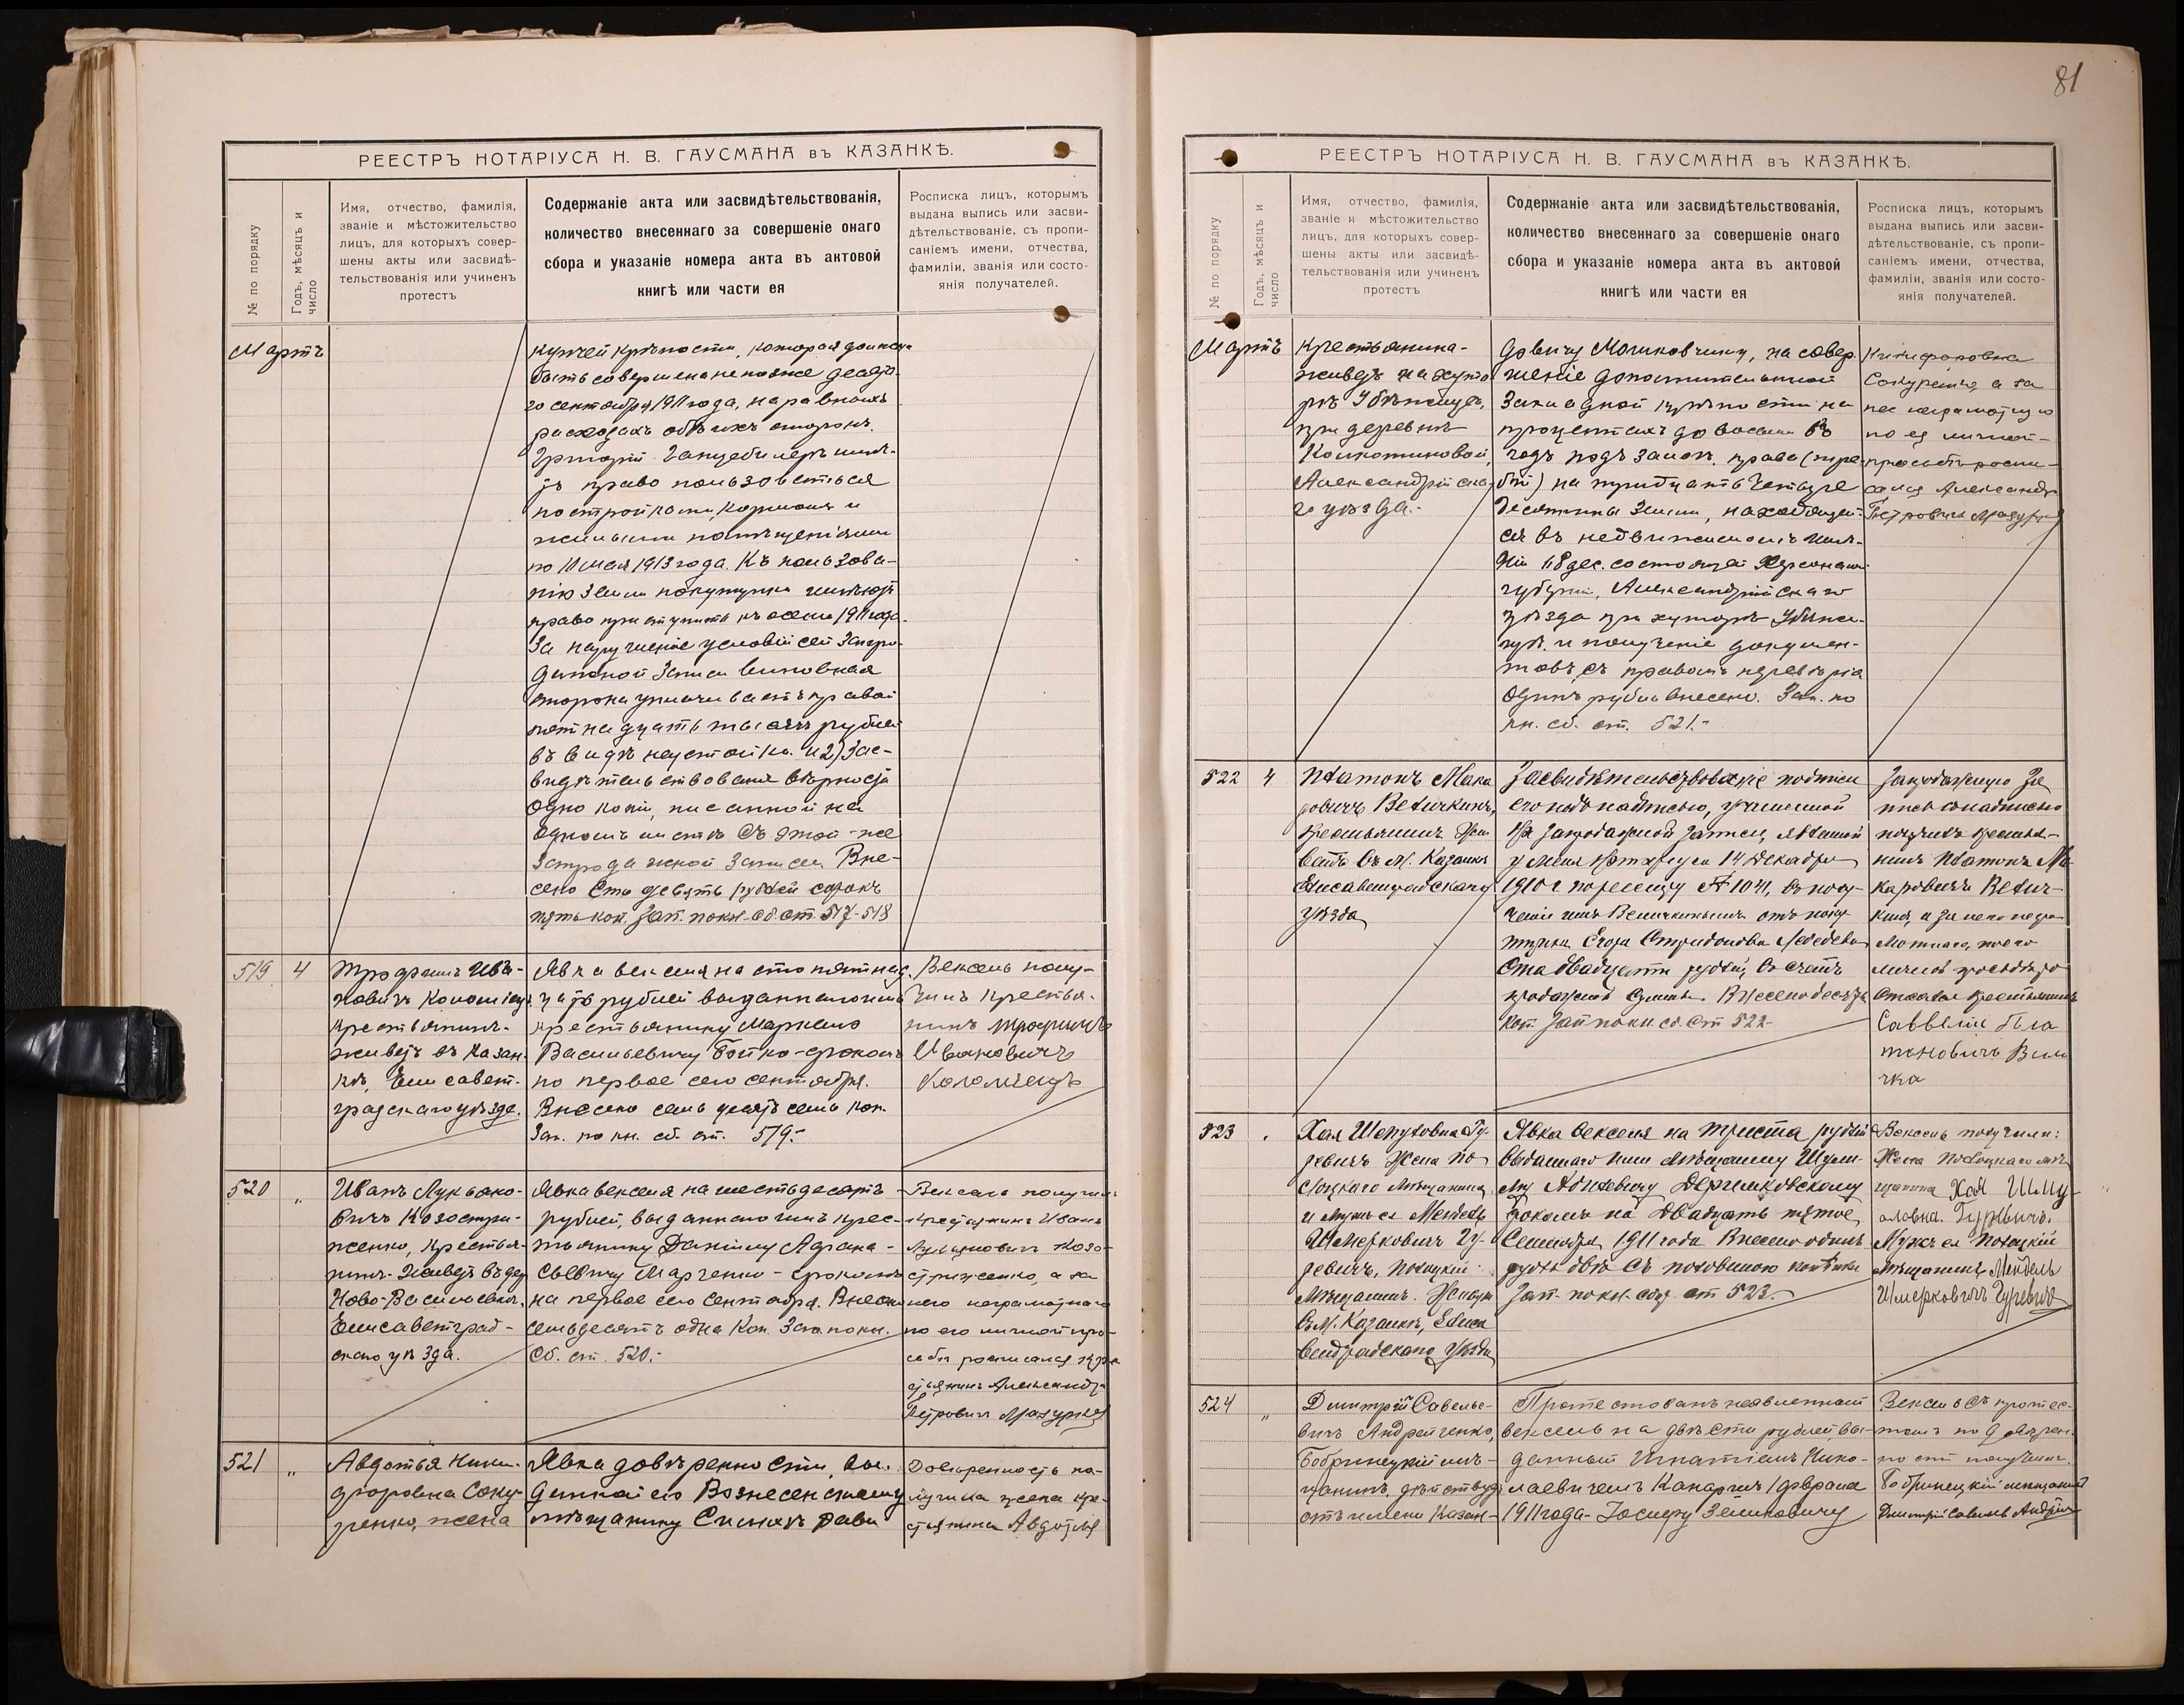 81
РЕЕСТРЪ НОТАРІУСА Н. В. ГАУСМАНА въ КАЗАНКѢ.
№ по порядку
Годъ, мѣсяцъ и
число
Имя, отчество, фамилія,
званіе и мѣстожительство
лицъ, для которыхъ совер-
шены акты или засвидѣ-
тельствованія или учиненъ
протестъ
Содержаніе акта или засвидѣтельствованія,
количество внесеннаго за совершеніе онаго
сбора и указаніе номера акта въ актовой
книгѣ или части ея
Росписка лицъ, которымъ
выдана выпись или засви-
дѣтельствованіе, съ пропи-
саніемъ имени, отчества,
фамиліи, званія или состо-
янія получателей.
Мартъ
купчей крѣпости, которая должна
быть совершена не позже десята-
го сентября 1911 года, на равныхъ
расходахъ обѣихъ сторонъ.
Григорій имѣ-
етъ право пользоваться
постройками, и
жилыми помѣщеніями
по 10 мая 1913 года. Къ пользова-
нію земли покупщики имѣютъ
право приступить къ осени 1911 года.
За нарушеніе условій сей запро-
дажной записи виновная
сторона уплачиваетъ правой
пятнадцать тысячъ рублей
въ видѣ неустойки. и 2) Зас-
видѣтельствованіе вѣрности
одно копіи, писанной на
одномъ листѣ съ этой-же
запродажной записи. Вне-
сено сто девять рублей сорокъ
пять коп. Зап. по кн. сб. ст. 517-518
519
4
Трофимъ Ива-
новичъ Коломіецъ,
крестьянинъ-
живетъ въ Казан-
кѣ, Елисавет-
градскаго уѣзда.
Явка векселя на сто пятнад-
цать рублей выданнаго имъ
крестьянину Маркелу
Васильевичу Бойко-срокомъ
по первое сего сентября.
Внесено семьдесятъ семь коп.
Зап. по кн. сб. ст. 519.-
Вексель полу-
чилъ крестья-
нинъ Трофимъ
Ивановичъ
Коломіецъ
520
"
Иванъ Лукьяно-
вичъ Козостри-
женко, крестья-
нинъ-живетъ въ дер.
Ново-Василевкѣ,
Елисаветград-
скаго уѣзда.
Явка векселя на шестьдесятъ
рублей, выданнаго имъ крес-
тьянину Даніилу Афана-
сьевичу Марченко-срокомъ
на первое сего сентября. Внесено
семьдесятъ одна коп. Зап. по кн.
сб. ст. 520.-
Вексель получилъ
крестьянинъ Иванъ
Лукьяновичъ Козо-
стриженко, а за
него неграмотнаго
по его личной про-
сьбѣ росписался кре-
стьянинъ Александръ
Петровичъ Мазурке
521
"
Авдотья Ники-
форовна Соку-
ренко, жена
Явка довѣренности, вы-
данной ею Вознесенскому
мѣщанину Симахъ Дави-
Довѣренность по-
лучила жена кре-
стьянина Авдотья
РЕЕСТРЪ НОТАРІУСА Н. В. ГАУСМАНА въ КАЗАНКѢ.
№ по порядку
Годъ, мѣсяцъ и
число
Имя, отчество, фамилія,
званіе и мѣстожительство
лицъ, для которыхъ совер-
шены акты или засвидѣ-
тельствованія или учиненъ
протестъ
Содержаніе акта или засвидѣтельствованія,
количество внесеннаго за совершеніе онаго
сбора и указаніе номера акта въ актовой
книгѣ или части ея
Росписка лицъ, которымъ
выдана выпись или засви-
дѣтельствованіе, съ пропи-
саніемъ имени, отчества,
фамиліи, званія или состо-
янія получателей.
Мартъ
крестьянина-
живетъ на хуто-
рѣ
при деревнѣ
Александрійска-
го уѣзда.-
довичу Мошковичу, на совер-
шеніе дополнительной
закладной крѣпости на
процентахъ до восьми въ
годъ подъ залогъ права
на тридцать четыре
десятины земли, находящей-
ся въ недвижимомъ имѣ-
ніи 68 дес. состоящей Херсонской
губерніи, Александрійскаго
уѣзда при хуторѣ
и полученіе докумен-
товъ, съ правомъ передовѣрія
Одинъ рубль внесено. Зап. по
кн. сб. ст. 521.-
Никифоровна
Сокуренко, а за
нее неграмотную
по ея личной
просьбѣ роспи-
сался Александръ
Петровичъ Мазурке
522
4
Платонъ Мака-
ровичъ Величкинъ,
крестьянинъ. Жи-
ветъ въ м. Казанкѣ
Елисаветградскаго
уѣзда
Засвидѣтельствованіе подписи
его подъ надписью, учиненной
на запродажной записи, явленной
у меня нотаріуса 14 декабря
1910 г. по реестру № 1041, въ полу-
ченіи имъ Величкинымъ отъ поку-
пщика Егора Спиридонова Лебедева
ста двадцати рублей, въ счетъ
продажной суммы. Внесено десять
коп. Зап. по кн. сб. ст 522-
Запродажную за-
пись съ надписью
получилъ крестья-
нинъ Платонъ Ма-
каровичъ Велич-
кинъ, а за него негра-
мотнаго, по его
личной просьбѣ ро
списался крестьянинъ
Савветій Пла
тоновичъ Вели
чка
523
"
Хая Шмулевна Гу-
ревичъ жена По-
лоцкаго мѣщанина
и мужъ ея Мендель
Шмерковичъ Гу-
ревичъ, Полоцкій
мѣщанинъ. Живутъ
въ м. Казанкѣ, Елиса
ветградскаго уѣзда
Явка векселя на триста рублей
выданнаго ими мѣщанину Шули-
му Дергиковскому
срокомъ на двадцать пятое
Сентября 1911 года Внесено одинъ
рубль двѣ съ половиною копѣйки
Зап. по кн. сбор. ст 523.-
Вексель получили:
Жена Полоцкаго мѣ-
щанина Хая Шму
левна. Гурѣвичъ.
Мужъ ея Полоцкій
мѣщанинъ Мендель
Шмерковичъ Гуревичъ
524
"
Дмитрій Савелье-
вичъ Андрейченко,
Бобринецкій мѣ-
щанинъ, дѣйствую
отъ имени Казан-
Протестованъ неявленный
вексель на двѣсти рублей, вы-
данный Игнатіемъ Нико-
лаевичемъ февраля
1911 года-Іосифу Зельмановичу
Вексель съ протес-
томъ по довѣрен-
ности получилъ.
Бобринецкій мѣщанинъ
Дмитрій Савельев Андрейч